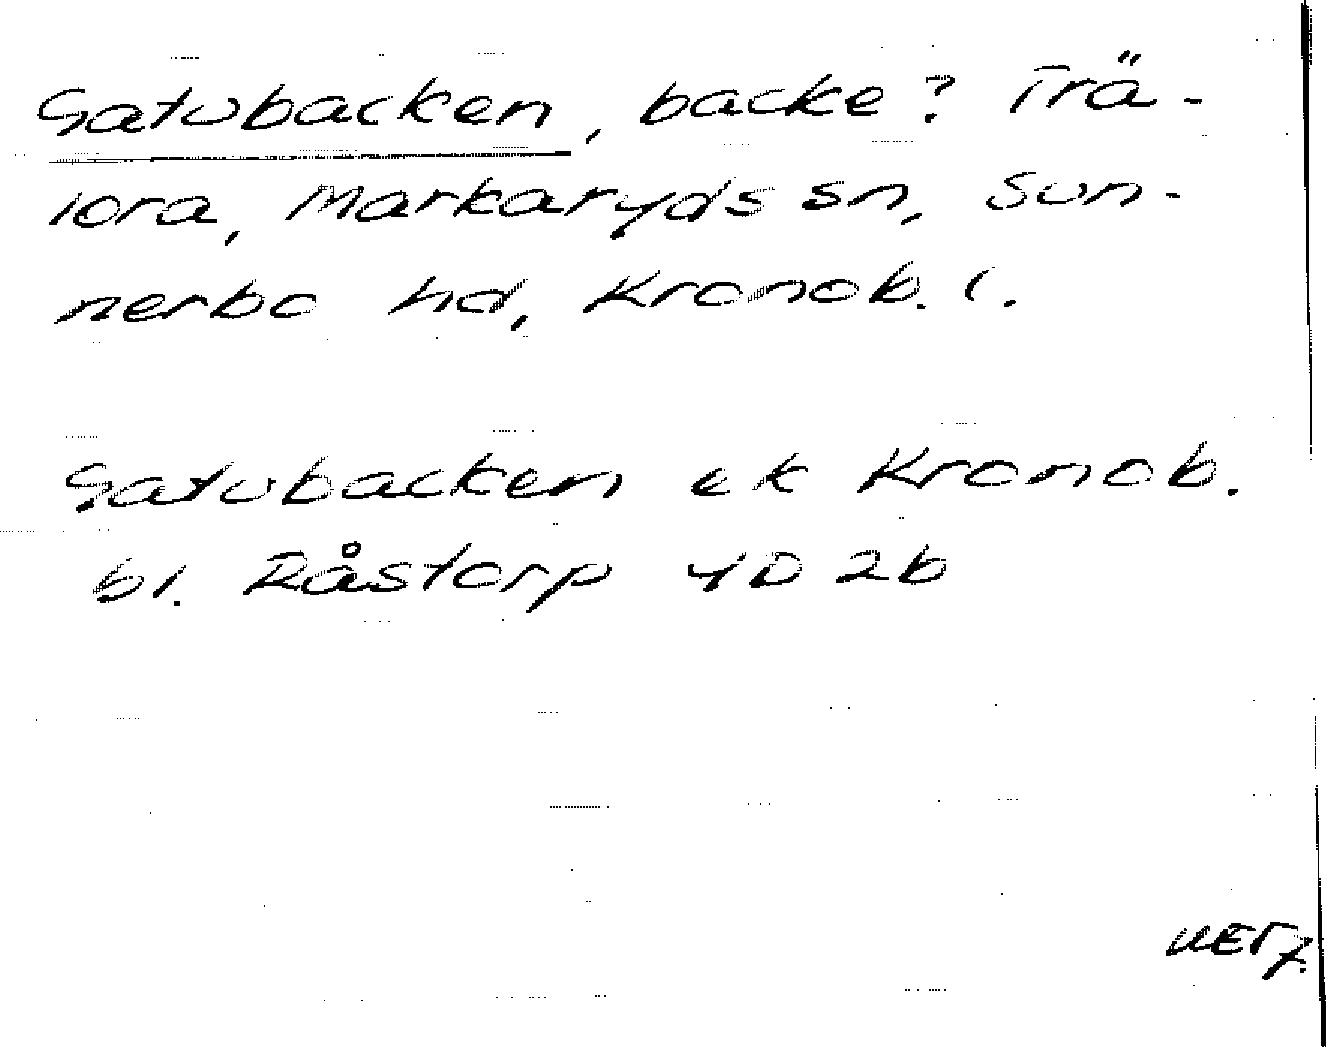 Gatubacken, backe? Trä-
lora, Markaryds sn, Sun-
nerbo hd, Kronob. l.
Gatubacken ek Kronob.
bl. Råstorp 4D 2b